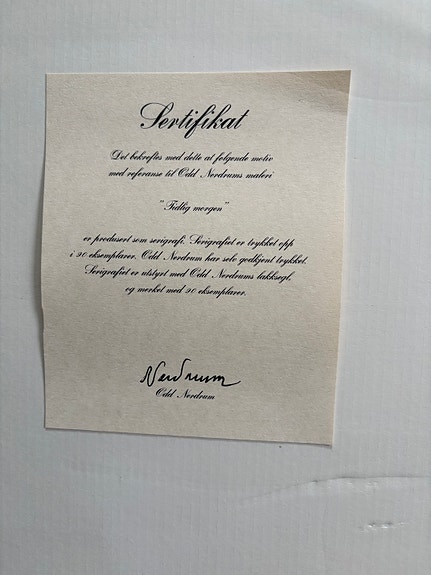 Sertifikat
Det bekreftes med dette at følgende motiv
med referanse til Odd Nerdrums maleri
"Tidlig morgen"
er produsert som serigrafi. Serigrafiet er trykket opp
i 90 eksemplarer. Odd Nerdrum har selv godkjent trykket.
Serigrafiet er utstyrt med Odd Nerdrums lakksegl,
og merket med 90 eksemplarer.
Nerdrum
Odd Nerdrum